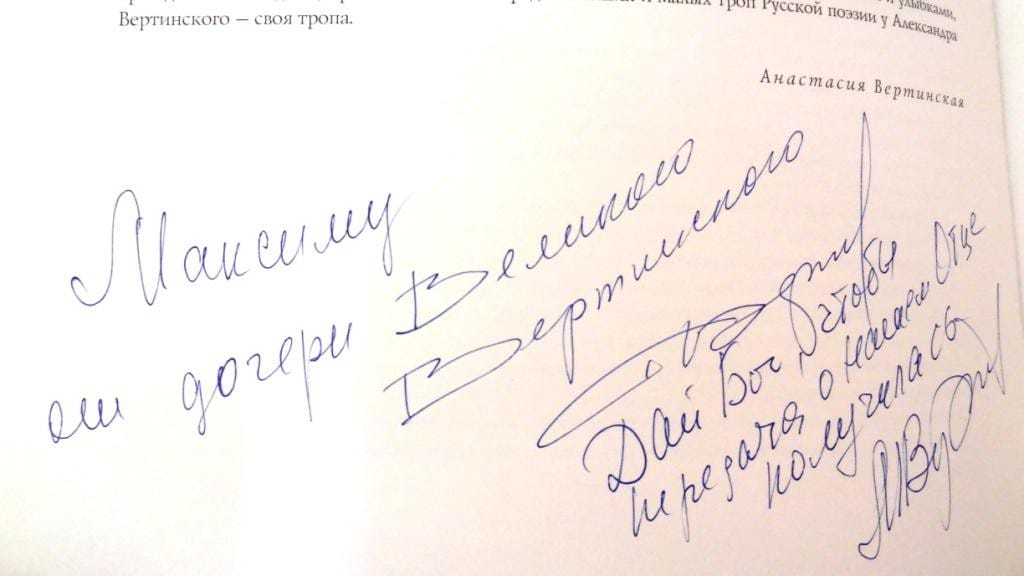 Вертинского – своя тропа.
и улыбками,
и малых троп Русской поэзии у Александра
Анастасия Вертинская
Максиму
от дочери Великого
Вертинского
Дай Бог, чтобы
передача о нашем Отце
получилась